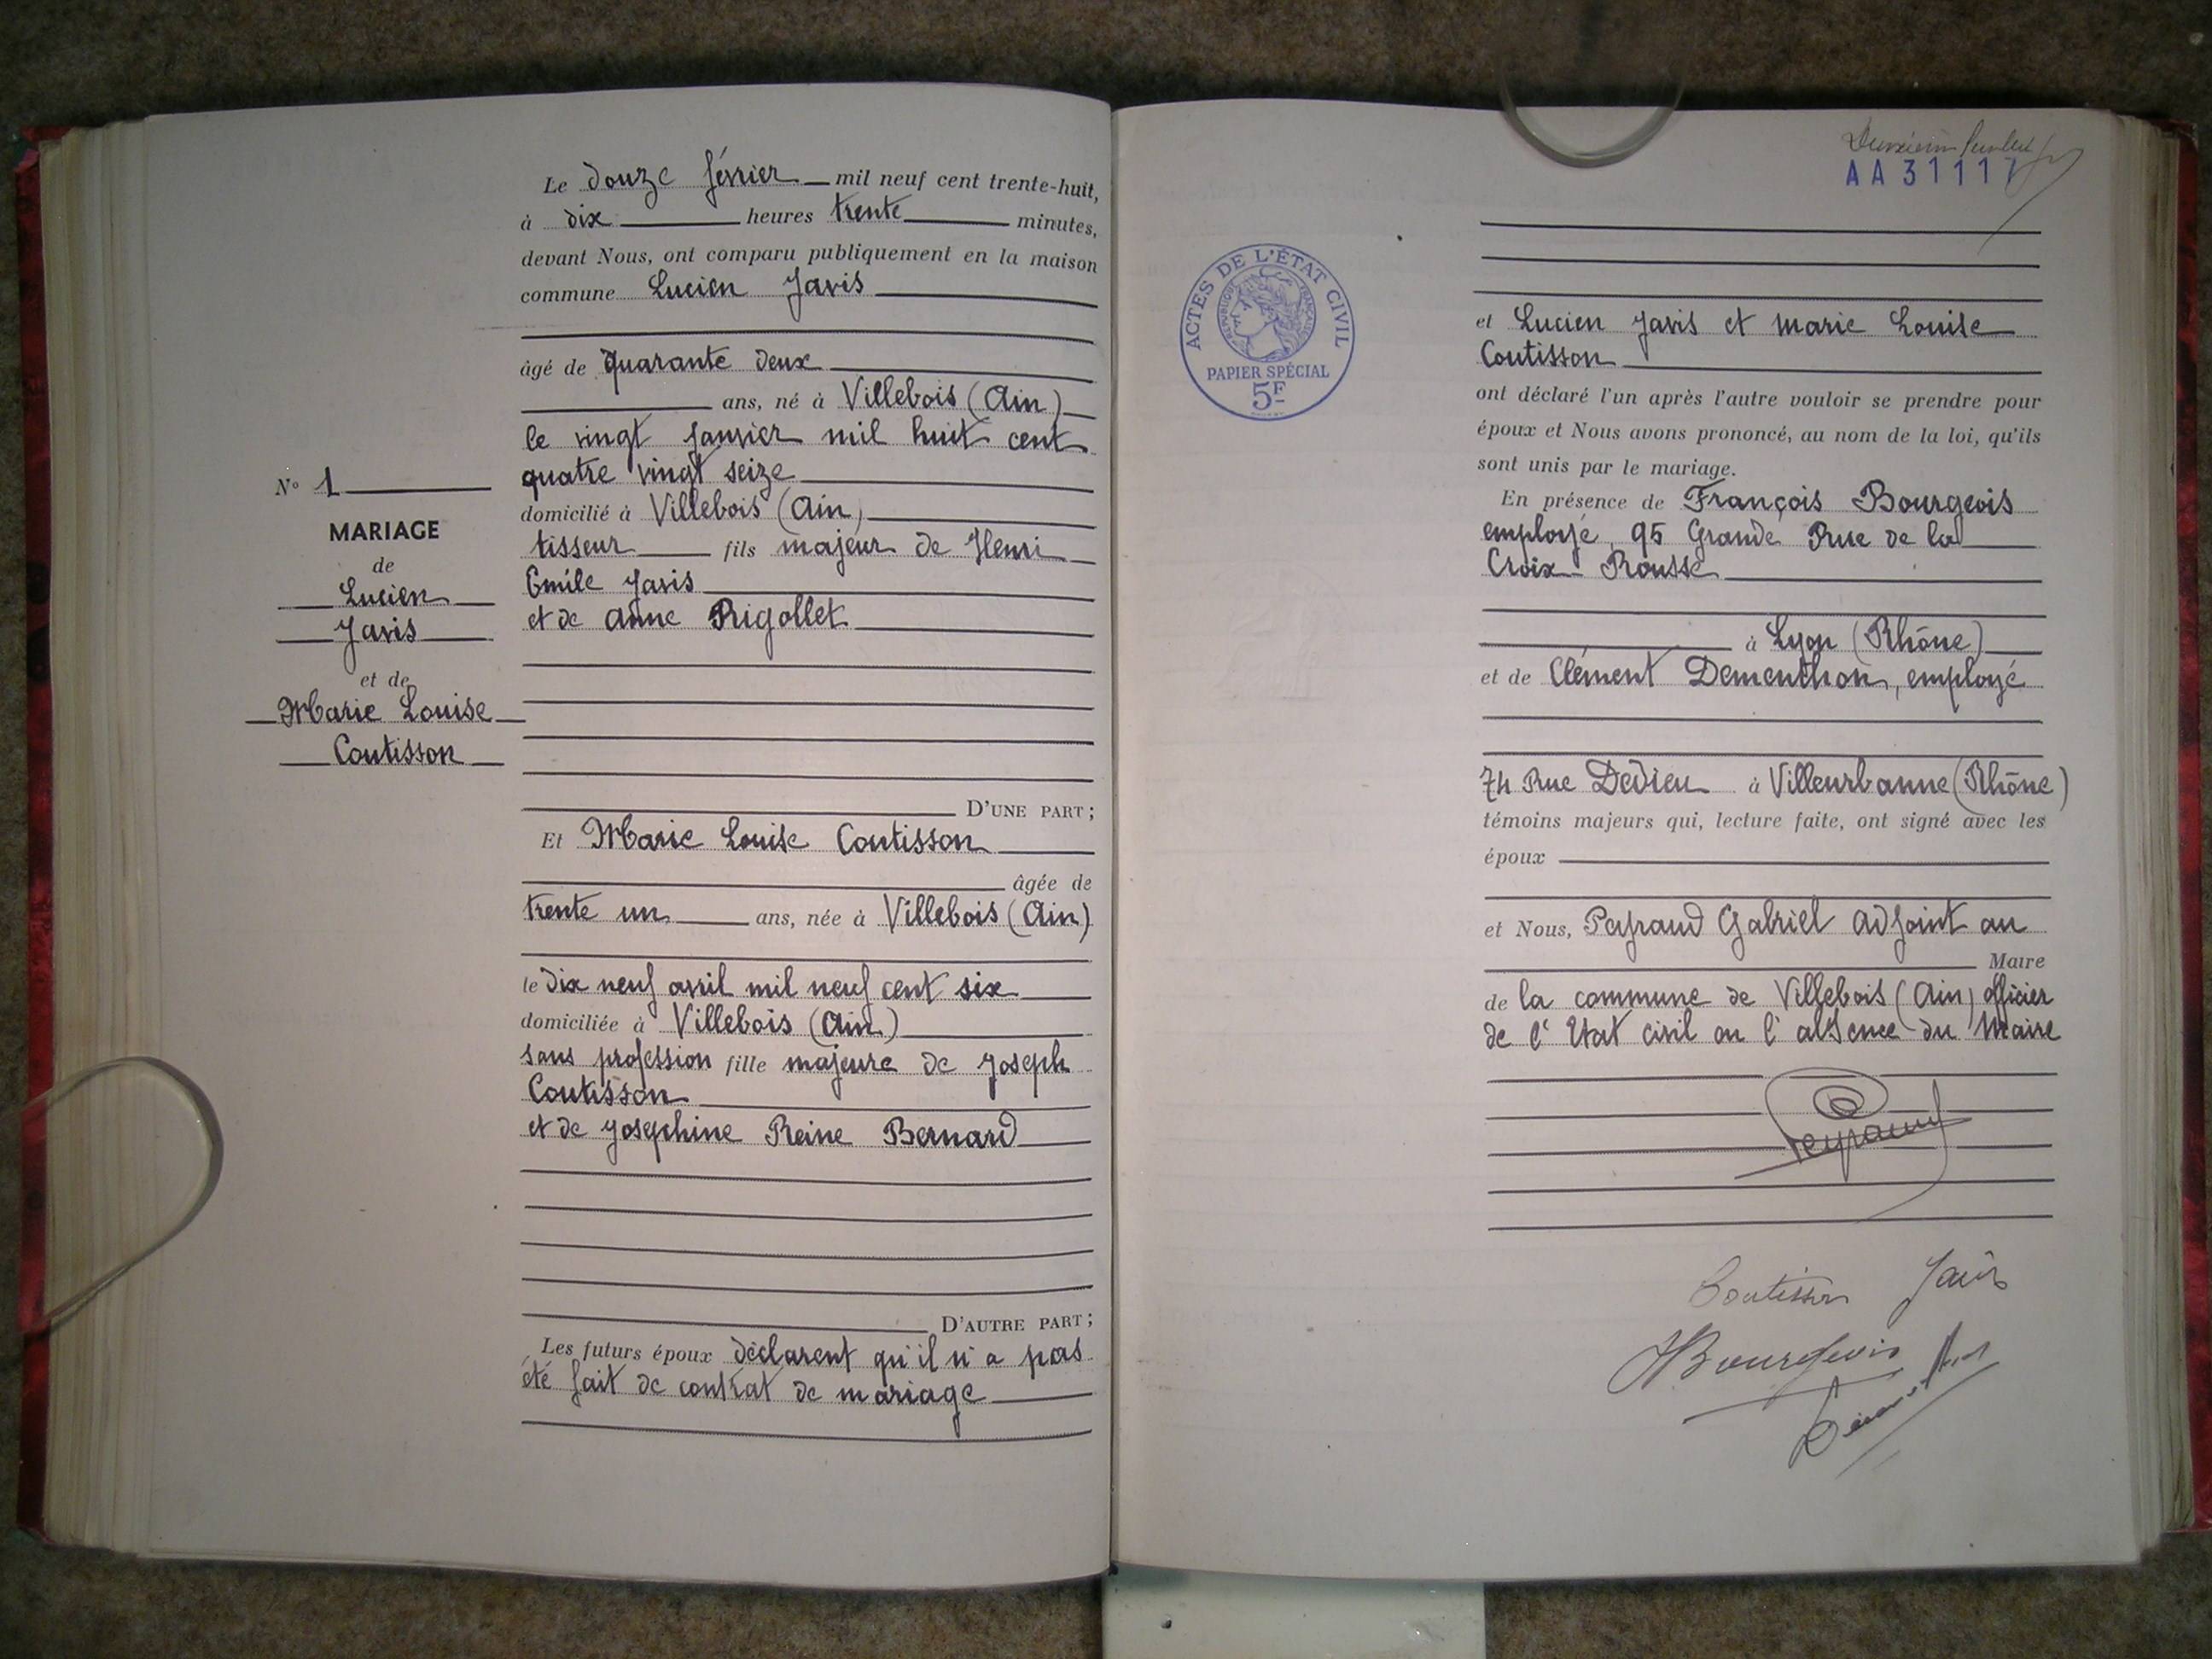 Le douze février mil neuf cent trente-huit,
à dix heures trente minutes,
devant Nous, ont comparu publiquement en la maison
commune Lucien Javis
âgé de quarante deux
ans, né à Villebois (Ain)
le vingt janvier mil huit cent
quatre vingt seize
domicilié à Villebois (Ain)
tisseur fils majeur de Henri
Emile Javis
et de Anne Rigollet
D'UNE PART;
Et Marie Louise Coutisson
âgée de
trente un ans, née à Villebois (Ain)
le dix neuf avril mil neuf cent six
domiciliée à Villebois (Ain)
sans profession fille majeure de Joseph
Coutisson
et de Josephine Reine Bernard
D'AUTRE PART;
Les futurs époux déclarent qu'il n'a pas
été fait de contrat de mariage
N° 1
MARIAGE
de
Lucien
Javis
et de
Marie Louise
Coutisson
AA 31117
ACTES DE L'ÉTAT CIVIL
RÉPUBLIQUE FRANÇAISE
PAPIER SPÉCIAL
5F
et Lucien Javis et Marie Louise
Coutisson
ont déclaré l'un après l'autre vouloir se prendre pour
époux et Nous avons prononcé, au nom de la loi, qu'ils
sont unis par le mariage.
En présence de François Bourgeois
employé, 95 Grande Rue de la
Croix-Rousse
à Lyon (Rhône)
et de Clément Dementhon, employé
74 Rue Dedieu à Villeurbanne (Rhône)
témoins majeurs qui, lecture faite, ont signé avec les
époux
et Nous, Peyraud Gabriel adjoint au
Maire
de la commune de Villebois (Ain) officier
de l'Etat civil en l'absence du Maire
Peyraud
Coutisson Javis
Bourgeois